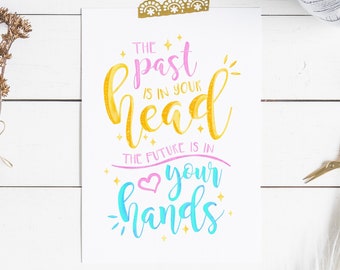 THE
past
IS IN YOUR
head
THE FUTURE IS IN
your
hands